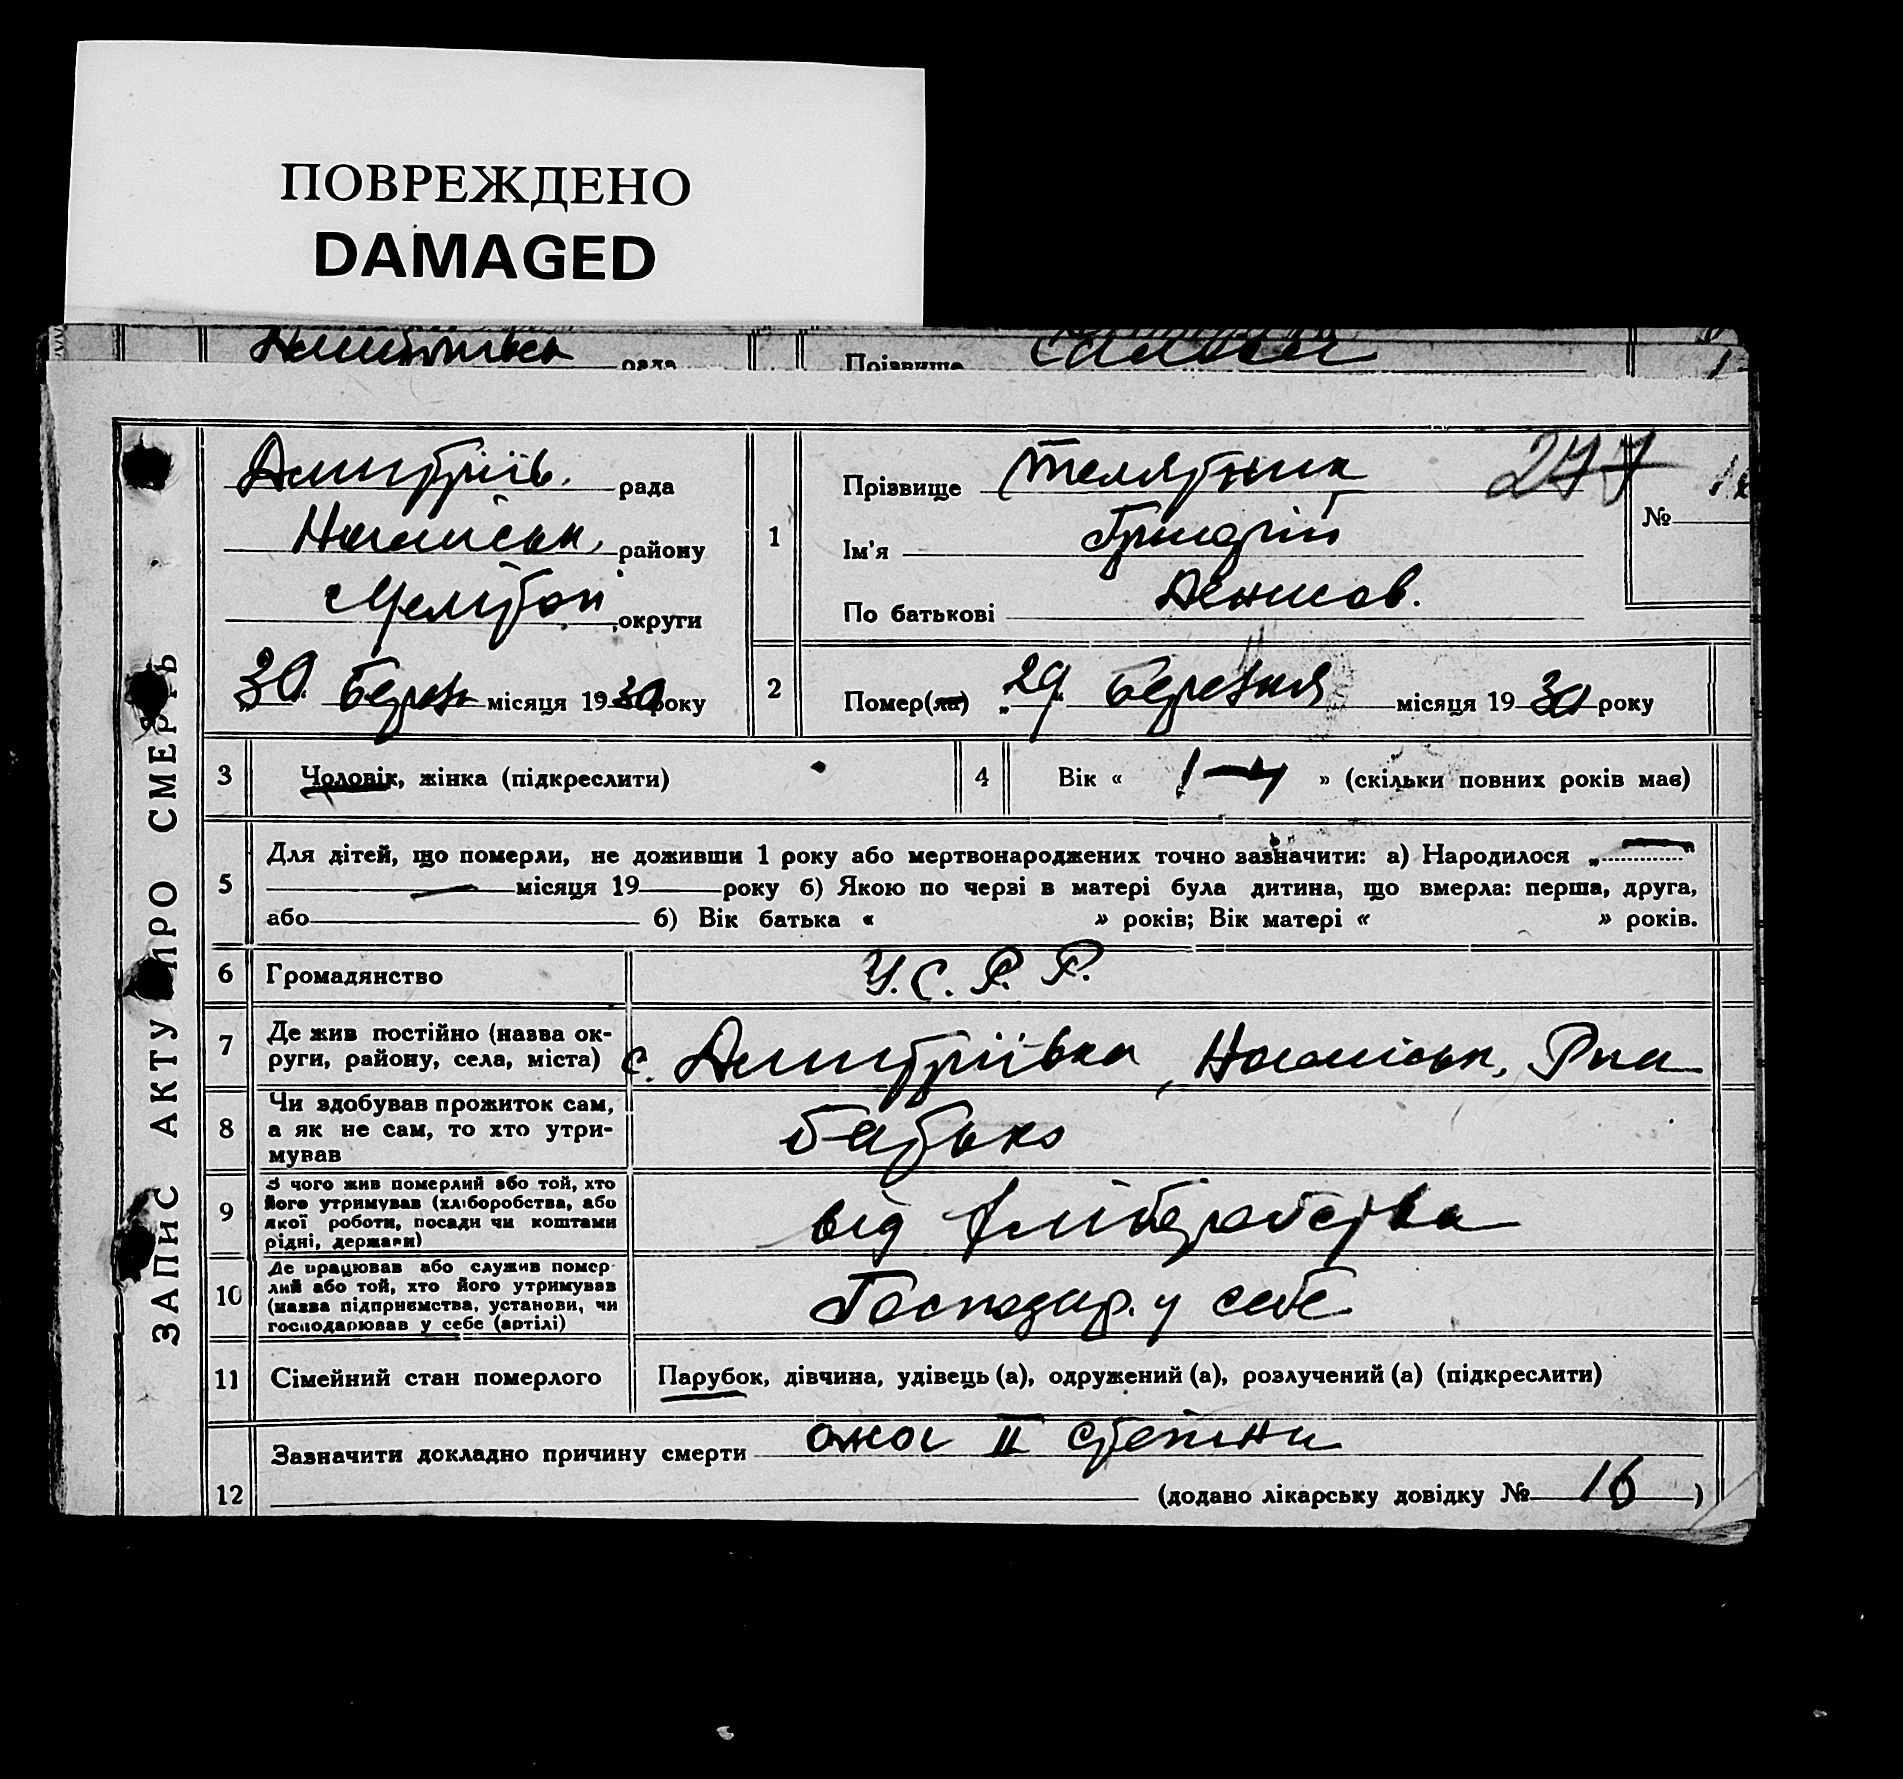 ПОВРЕЖДЕНО
DAMAGED
рада
Прізвище
ЗАПИС АКТУ ПРО СМЕРТЬ
Дмитріїв. рада
Ногайськ. району
Мелітоп округи
30 Березн місяця 1930 року
1
Прізвище Телятник 277
Ім'я Григрій
По батькові Денисов.
№
2
Помер(ла) „29" Березня місяця 1930 року
3 Чоловік, жінка (підкреслити)
4 Вік « » (скільки повних років має)
5 Для дітей, що померли, не доживши 1 року або мертвонароджених точно зазначити: а) Народилося „ "
— місяця 19 року б) Якою по черві в матері була дитина, що вмерла: перша, друга,
або б) Вік батька « » років; Вік матері « » років.
6 Громадянство У.С.Р.Р.
7 Де жив постійно (назва ок-
руги, району, села, міста) с. Дмитріївка, Ногайськ, Р-на
8 Чи здобував прожиток сам,
а як не сам, то хто утри-
мував
батько
9 З чого жив померлий або той, хто
його утримував (хліборобства, або
якої роботи, посади чи коштами
рідні, держави)
від хліборобства
10 Де працював або служив помер-
лий або той, хто його утримував
(назва підприємства, установи, чи
господарював у себе (артілі)
Господар. у себе
11 Сімейний стан померлого Парубок, дівчина, удівець (а), одружений (а), розлучений (а) (підкреслити)
12 Зазначити докладно причину смерти ожог II степени
(додано лікарську довідку № 16 )